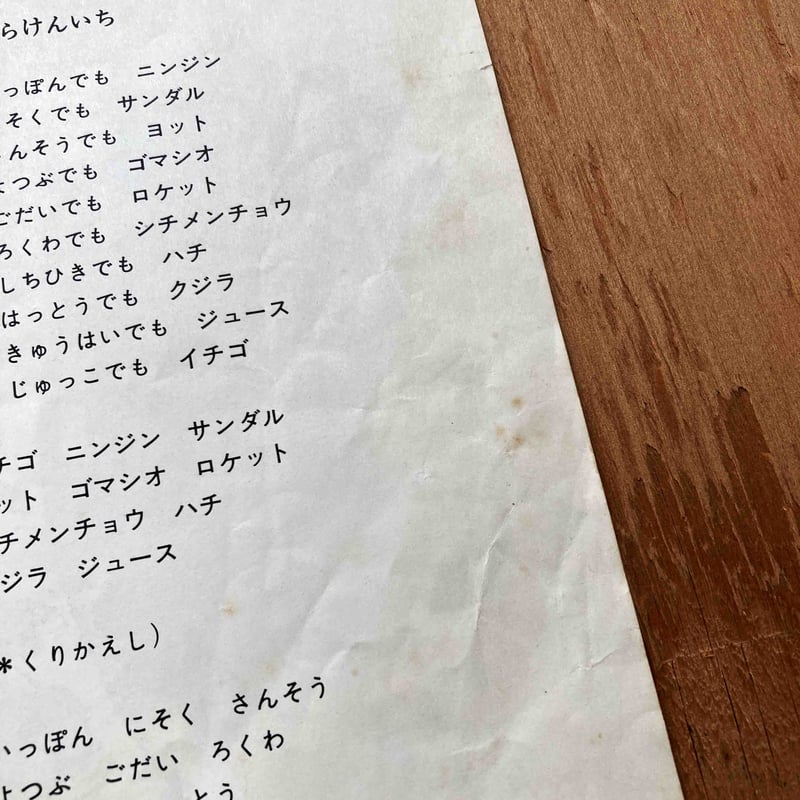 らけんいち
っぽんでも ニンジン
そくでも サンダル
んそうでも ヨット
よつぶでも ゴマシオ
ごだいでも ロケット
ろくわでも シチメンチョウ
しちひきでも ハチ
はっとうでも クジラ
きゅうはいでも ジュース
じゅっこでも イチゴ
チゴ ニンジン サンダル
ット ゴマシオ ロケット
チメンチョウ ハチ
ジラ ジュース
*くりかえし)
いっぽん にそく さんそう
よつぶ ごだい ろくわ
とう